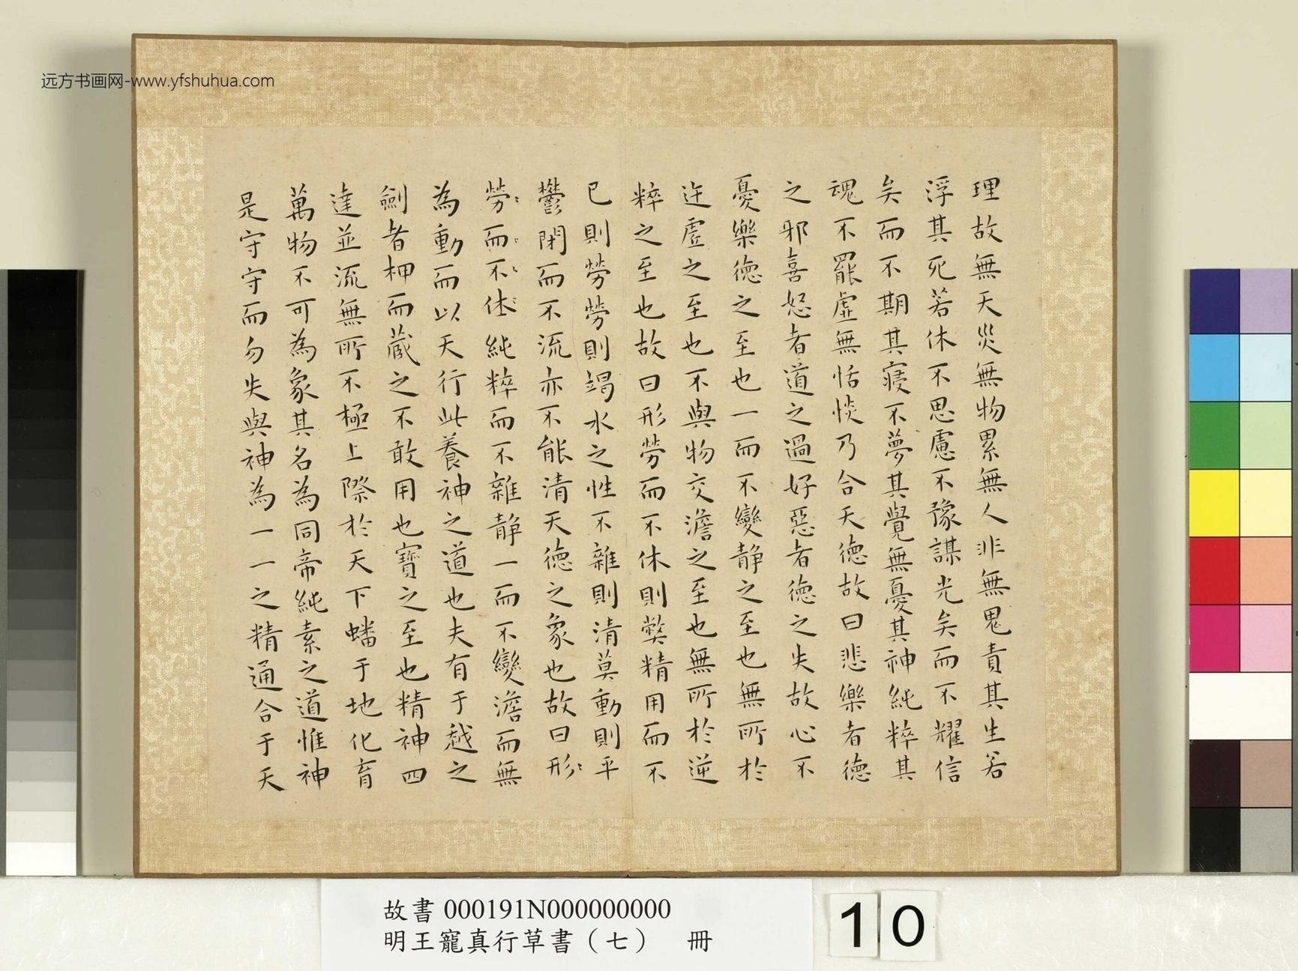 远方书画网-www.yfshuhua.com
理故無天災無物累無人非無鬼責其生若
浮其死若休不思慮不豫謀光矣而不耀信
矣而不期其寢不夢其覺無憂其神純粹其
魂不罷虛無恬惔乃合天德故曰悲樂者德
之邪喜怒者道之過好惡者德之失故心不
憂樂德之至也一而不變靜之至也無所於
迕虛之至也不與物交澹之至也無所於逆
粹之至也故曰形勞而不休則獘精用而不
已則勞勞則竭水之性不雜則清莫動則平
鬱閉而不流亦不能清天德之象也故曰形
勞而不休純粹而不雜靜一而不變澹而無
為動而以天行此養神之道也夫有于越之
劍者柙而藏之不敢用也寶之至也精神四
達並流無所不極上際於天下蟠于地化育
萬物不可為象其名為同帝純素之道惟神
是守守而勿失與神為一一之精通合于天
故書 000191N000000000
明王寵真行草書（七） 冊
10